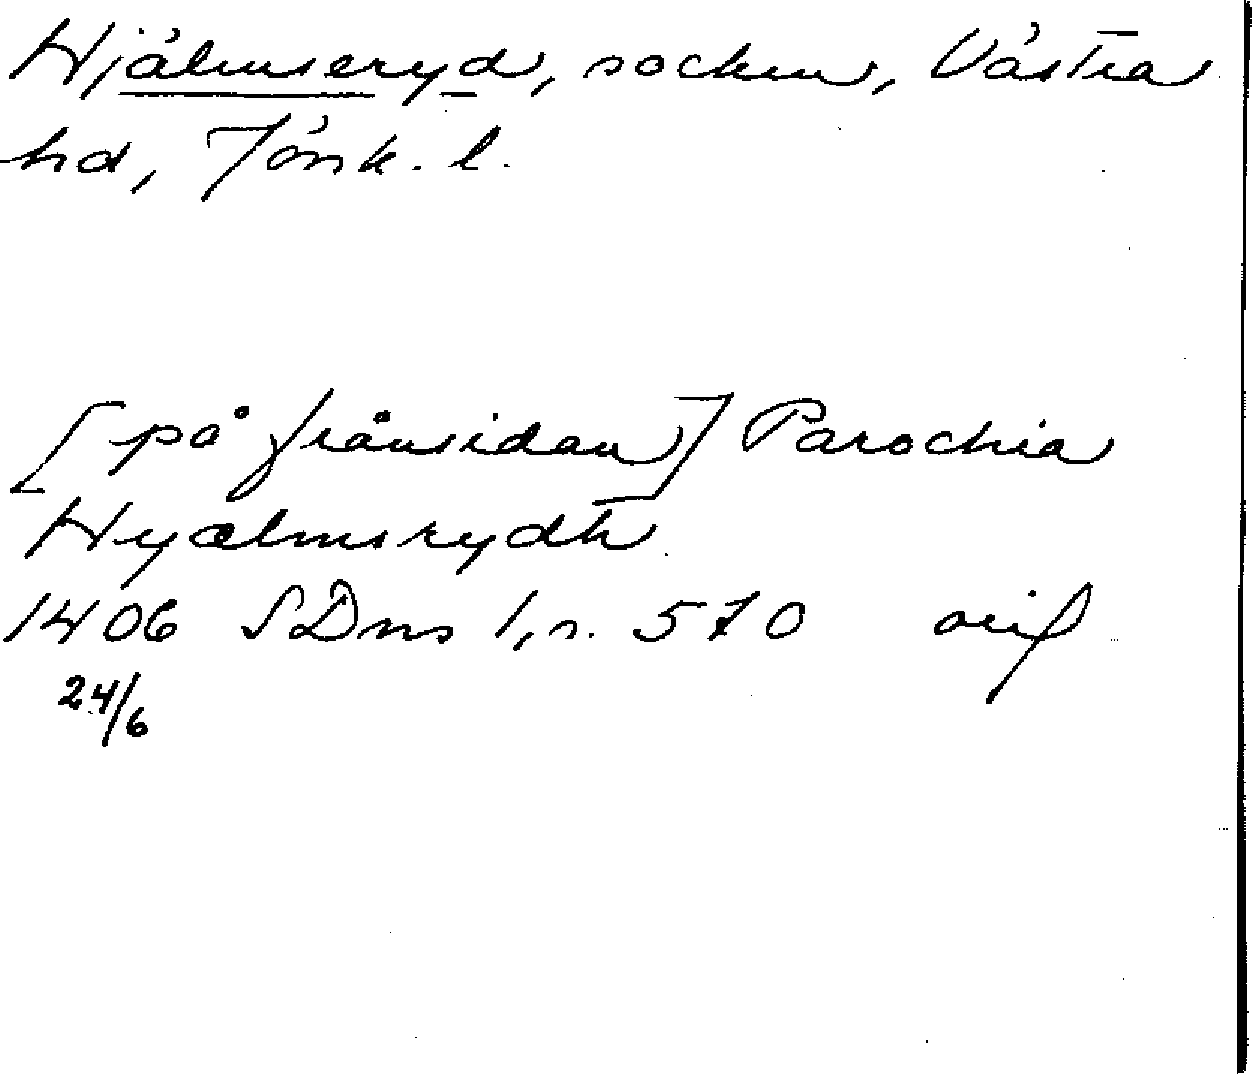 Hjälmseryd, socken, Västra
hd, Jönk. l.
[på frånsidan] Parochia
Hyælmsrydh
1406 SDns 1, s. 570 orig
24/6